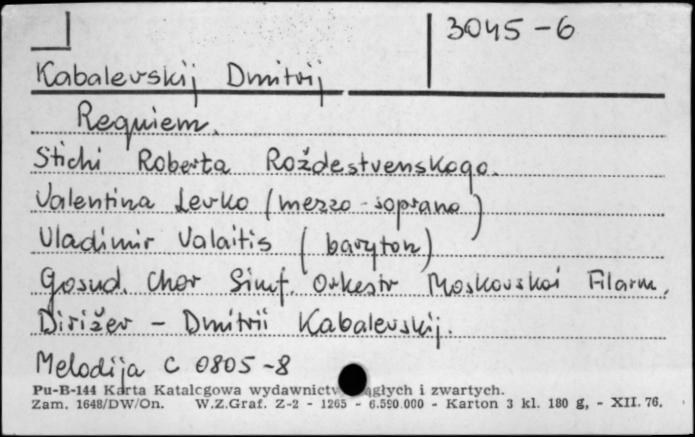 3045-6
Kabalevskij Dmitrij
Requiem.
Stichi Roberta Roždestvenskogo.
Valentina Levko (mezzo-soprano)
Vladimir Valaitis (baryton)
Gosud. Chor Simf. Orkestr Moskovskoi Filarm.
Dirižer - Dmitrii Kabalevskij.
Melodija C 0805-8
Pu-B-144 Karta Katalogowa wydawnictw ciągłych i zwartych.
Zam. 1648/DW/On. W.Z.Graf. Z-2 - 1265 - 6.590.000 - Karton 3 kl. 180 g, - XII. 76.